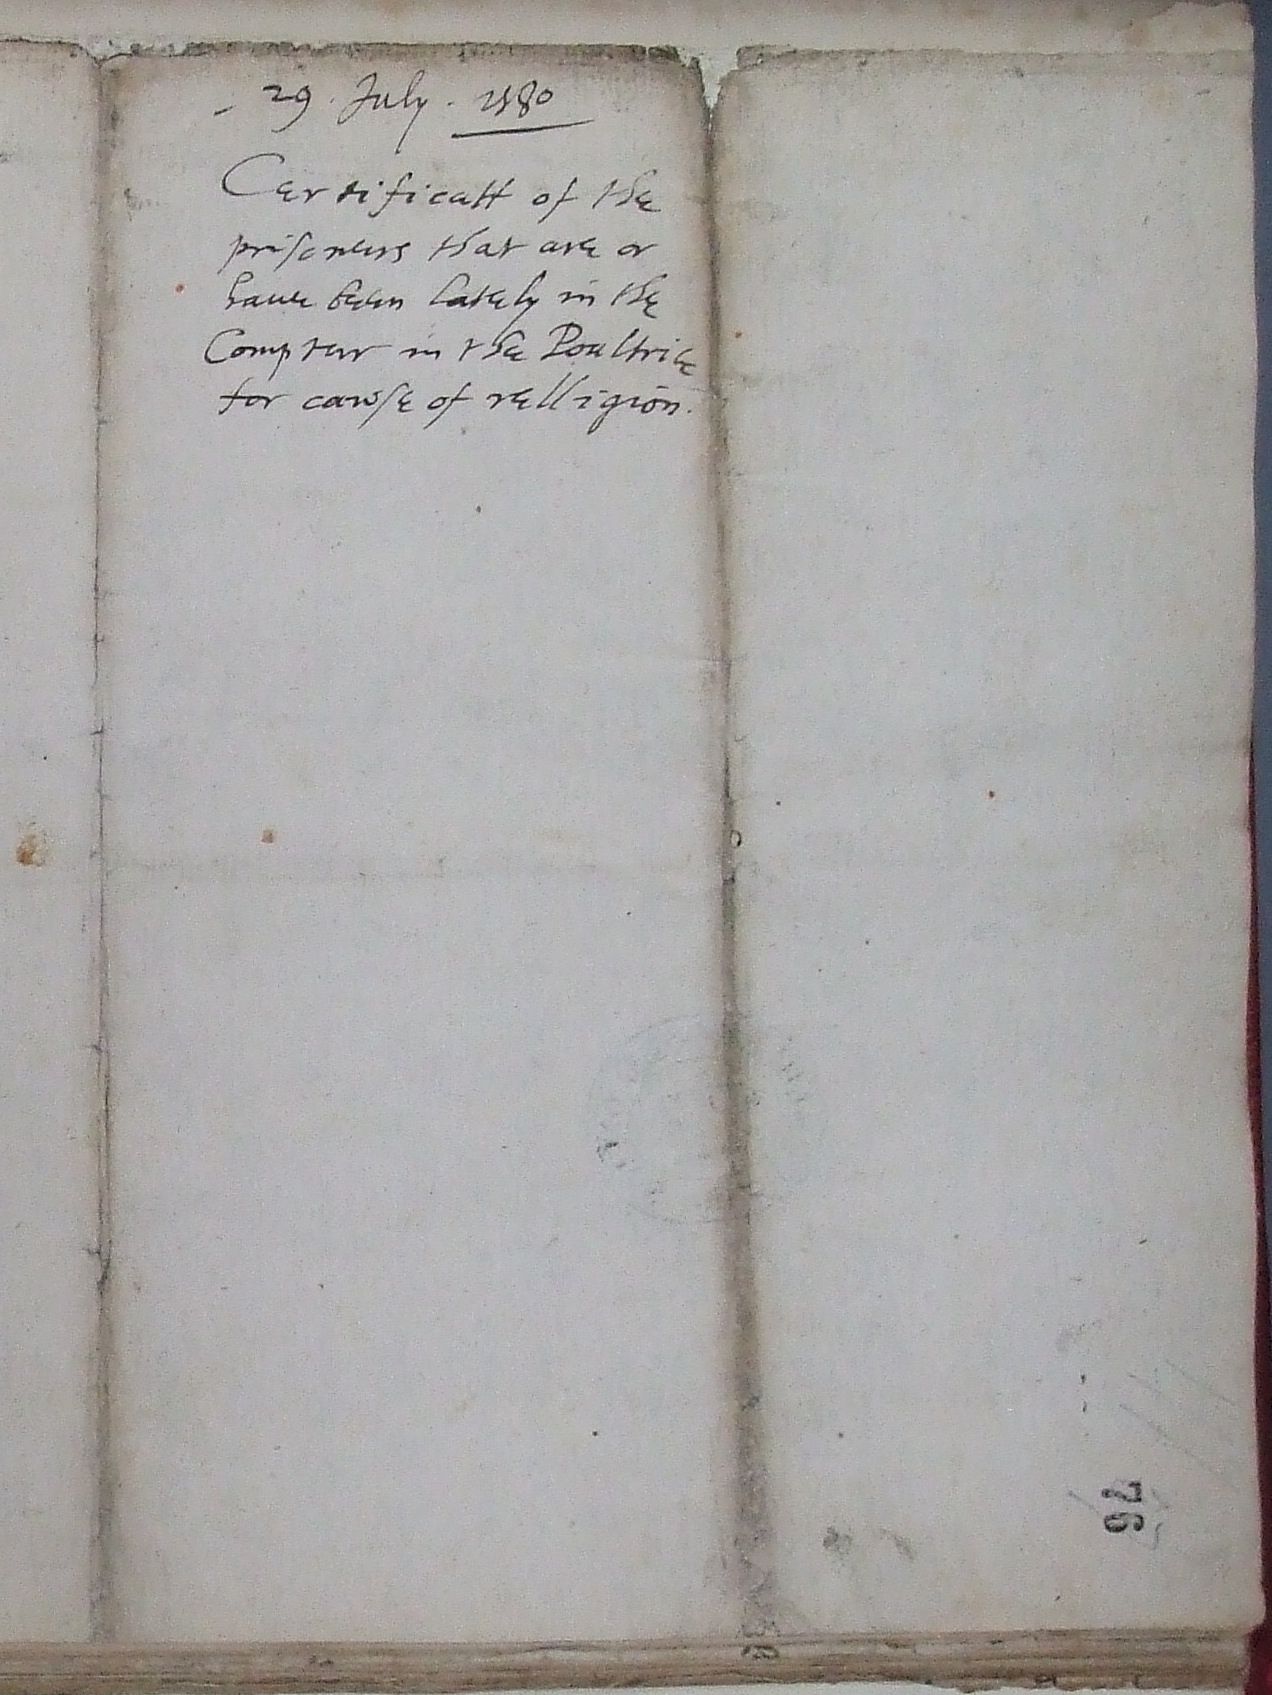 - 29. July. 1580
Certificatt of the
prisoners that are or
haue been lately in the
Compter in the Poultrie
for cawse of relligion.
76